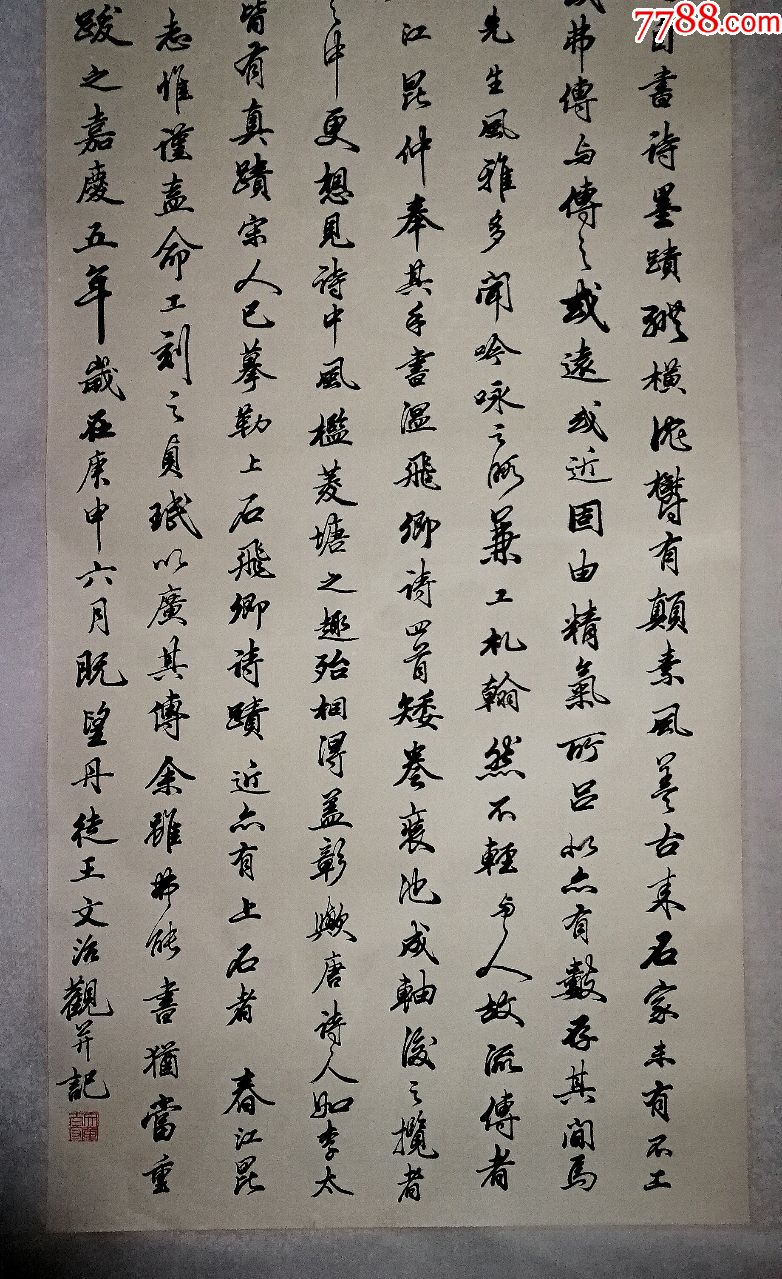 7788.com
自書詩墨蹟縱橫沈鬱有顛素風蓋古來名家未有不工
或弗傳与傳之或遠或近固由精氣所呂然亦有數存其間焉
先生風雅多聞吟咏之㫺兼工札翰然不輕與人故流傳者
江昆仲奉其手書溫飛卿詩四首矮卷裝池成軸後之攬者
之中更想見詩中風檻菱塘之趣殆相得蓋彰歟唐詩人如李太
皆有真蹟宋人已摹勒上石飛卿詩蹟近亦有上石者 春江昆
志惟謹盍命工刻之貞珉以廣其傳余雖弗能書猶當重
跋之嘉慶五年歲在庚申六月既望丹徒王文治觀并記